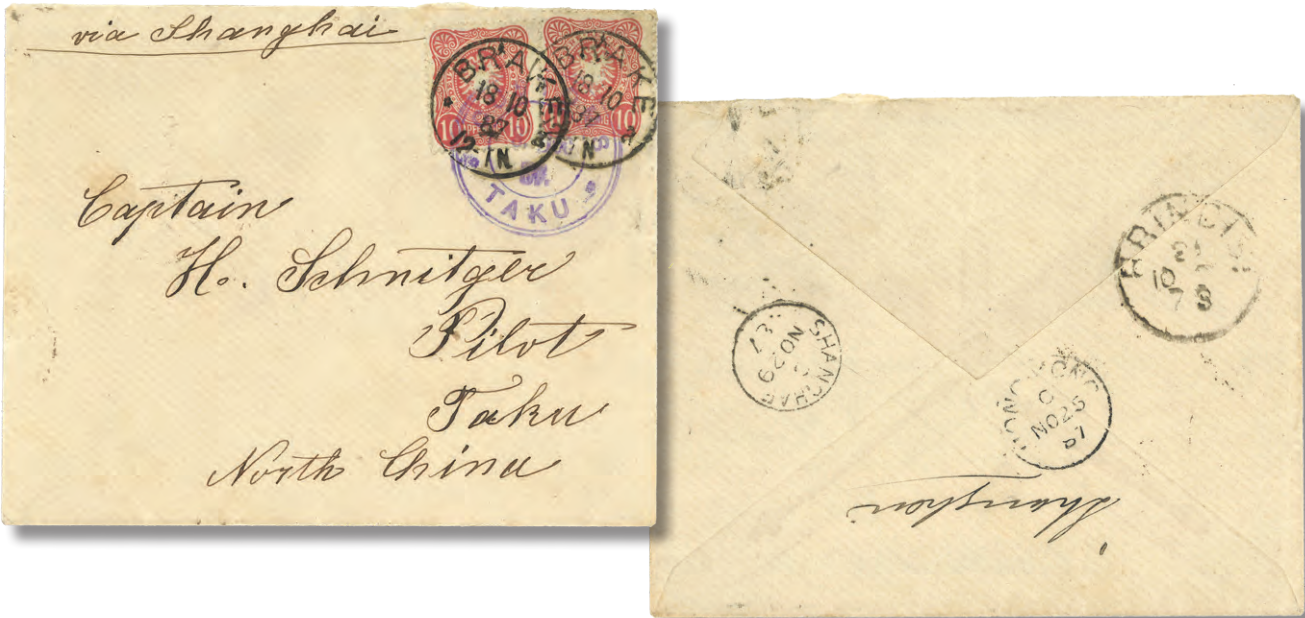 via Shanghai
BRAKE
18 10
87
12-1N
BRAKE
18 10
87
1N
10 PFENNIG 10
10
TAKU
Captain
H. Schnitger
Pilot
Taku
North China
BRINDISI
10
SHANGHAE
NO 29
87
HONG KONG
C
NO 25
87
Shanghai